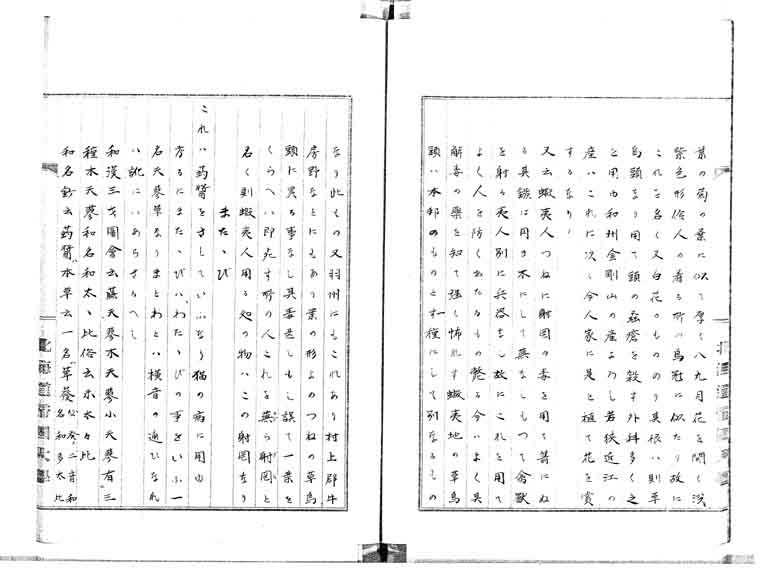 葉の菊の葉に似て厚く八九月花を開く淡
紫色形俗人の着る所の烏冠に似たり故に
これを名く又白花のものの り其根ハ則草
烏頭なり用て頭の蝨瘡を殺す外科多く之
を用ゆ和州金剛山の産よろし若狭近江の
産ハこれに次く今人家に是を植て花を賞
するなり
又云蝦夷人つねに射罔の委を用て箭にぬ
る其鏃に用ゆ木にして蕪なしもつて禽獣
を射る夷人別に兵器なし故にこれを用て
よく人を防くあたるもの斃る今ハよく其
解毒の藥を知て強く怖れす蝦夷地の草烏
頭ハ本邦のものと一種にして別なるもの
なり此もの又羽州にもこれあり村上郡牛
房野なとにもあり葉の形よのつねの草烏
頭に異る事なし其委甚しもし誤て一葉を
くらへハ即死す所の人これを蕪ら射罔と
名く則蝦夷人用る処の物ハこの射罔なり
またゝび
これハ蒟醤をさしていふなり猫の病に用ゆ
るにまたゝびハわたゝびの事をいふ一
名天蓼草なりまとわとハ横音の通ひなれ
ハ訛にハあらさるへし
和漢三才圖會云藤天蓼木天蓼小天蓼有三
種木天蓼和名和太々比俗云末太々比
和名鈔云蒟醤本草云一名蓽茇 和名和多太比